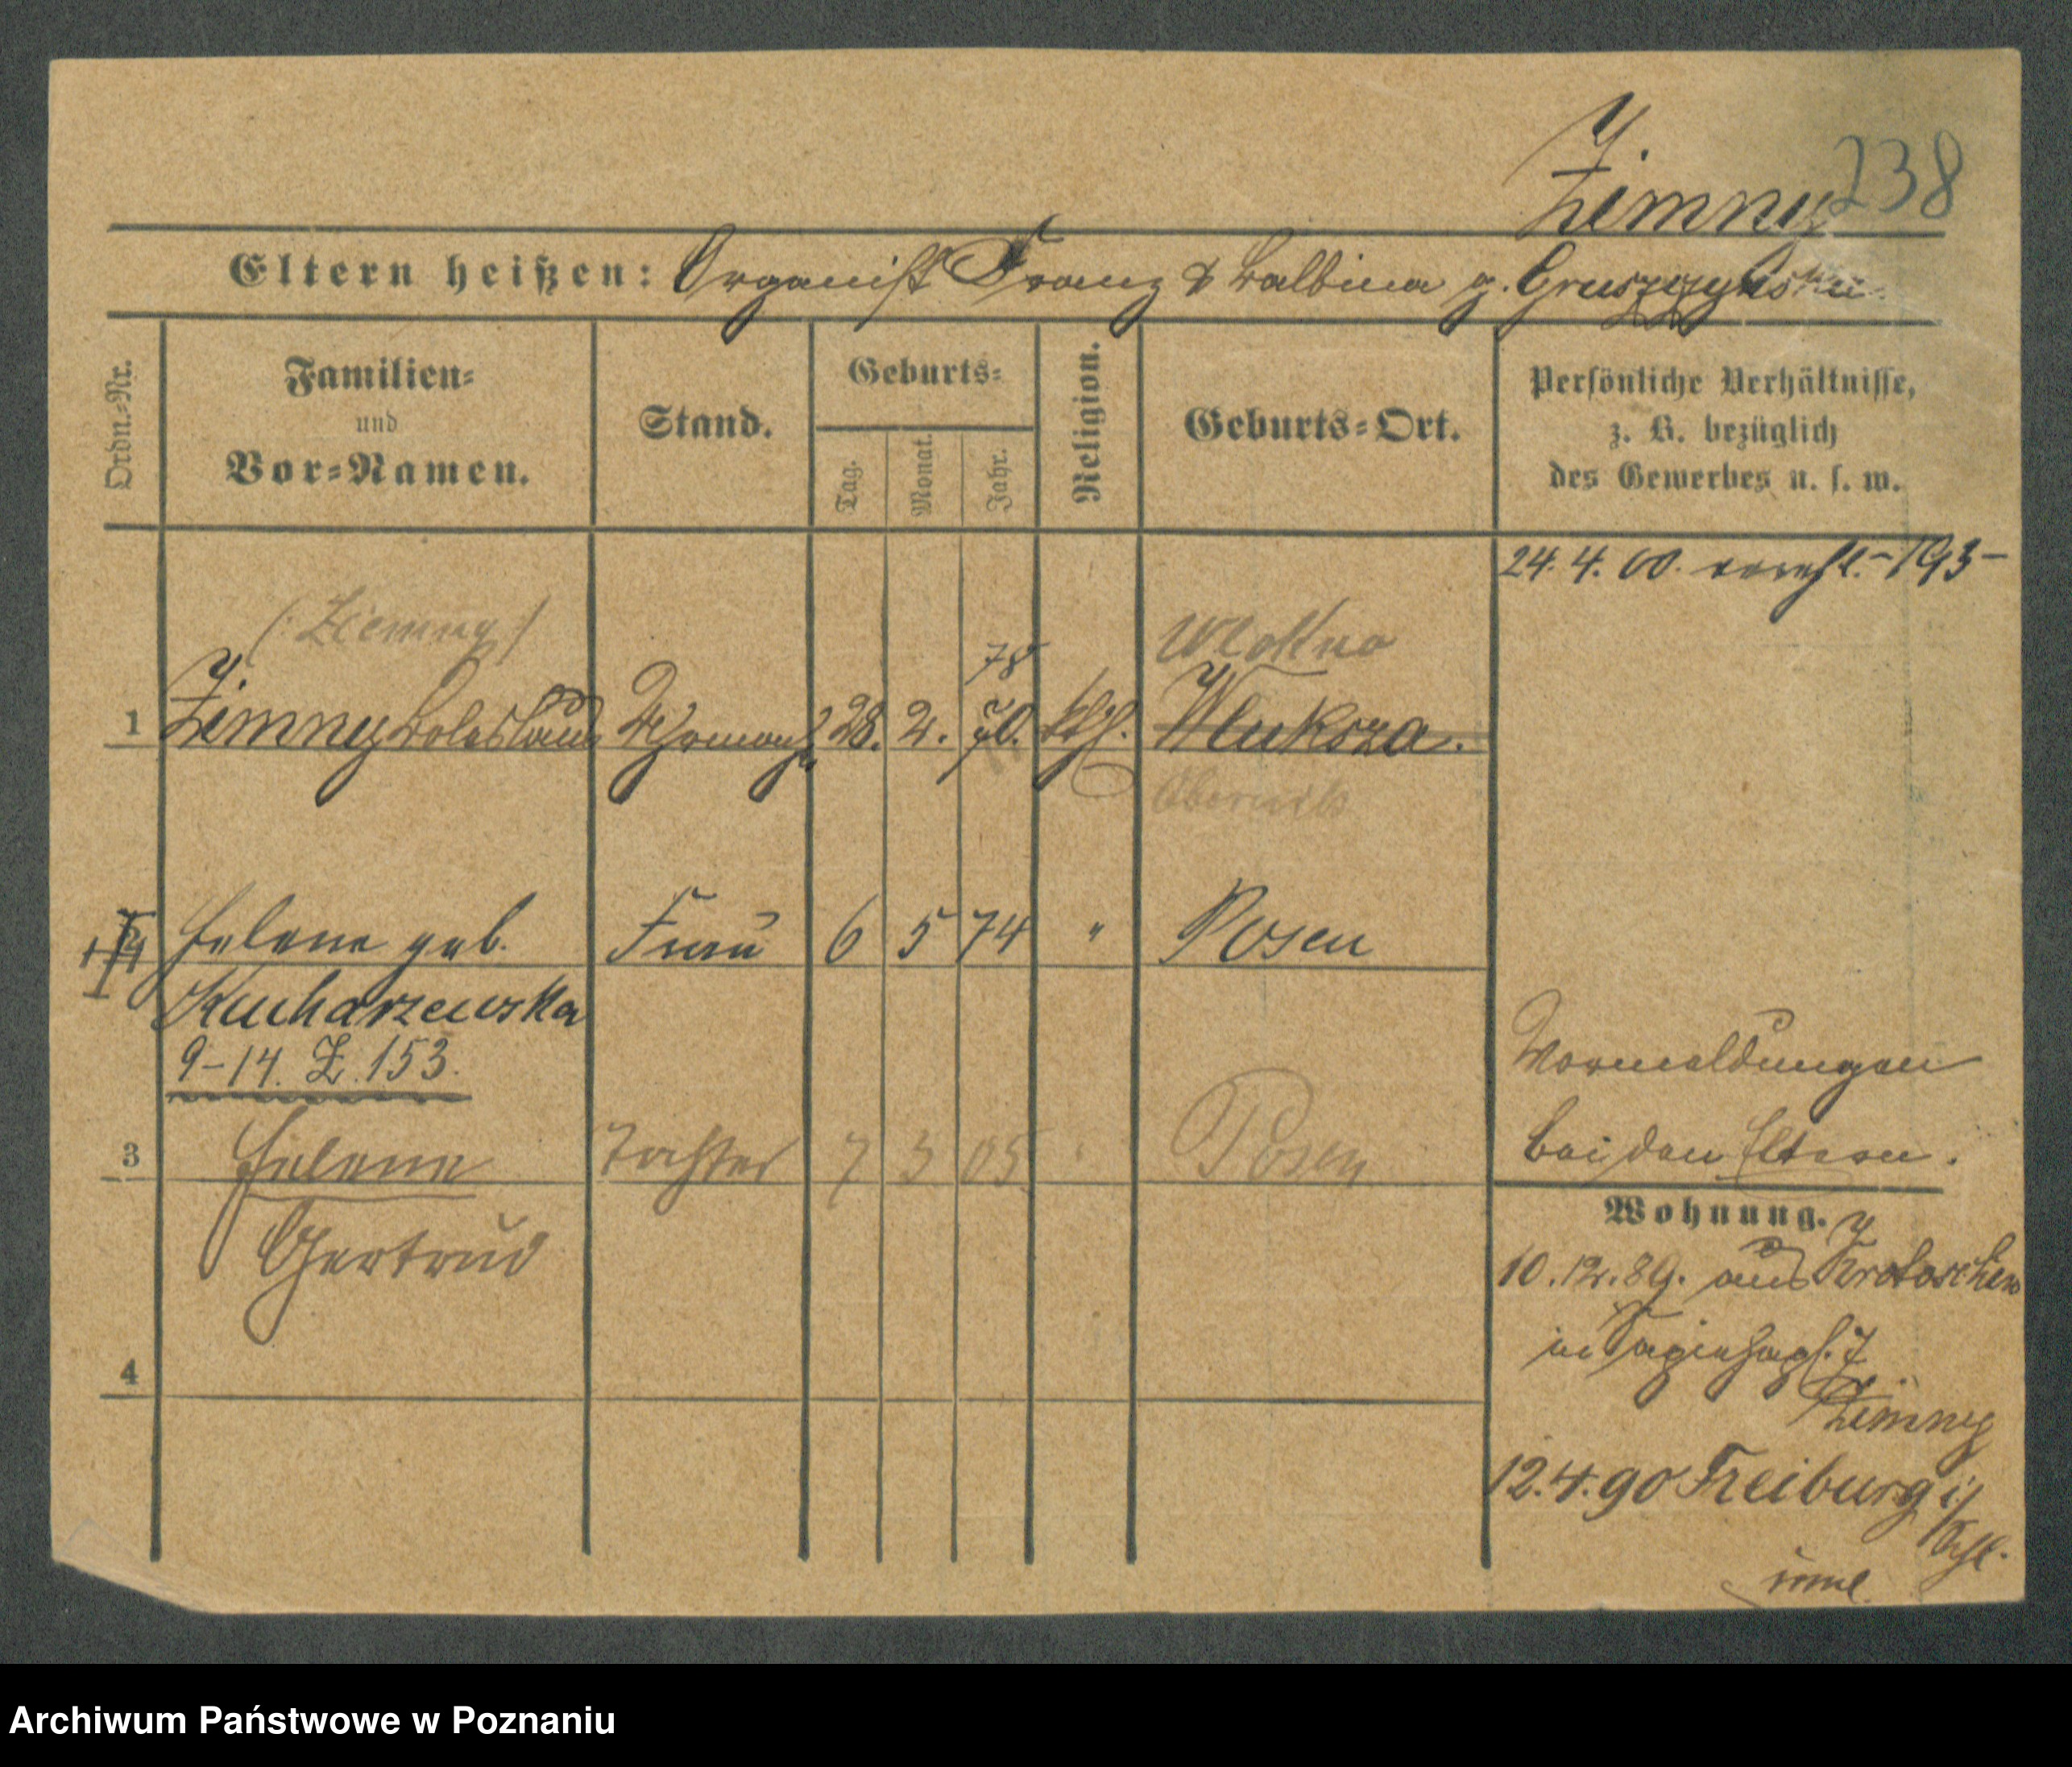 Zimny
238
Eltern heißen: Organist Franz & Balbina g. Gruszczynska
Ordn.-Nr.
Familien-
und
Vor-Namen.
Stand.
Geburts-
Tag.
Monat.
Jahr.
Religion.
Geburts-Ort.
Persönliche Verhältnisse,
z. B. bezüglich
des Gewerbes u. s. w.
24.4.00. verehl. - 193 -
(: Ziemny :)
Wlokno
78
1 Zimny Boleslaus Uhrmach. 28. 2. 70. kth. Wluksza.
Obornik
Helene geb. Frau 6 5 74 " Posen
Kucharzewska
9-14. Z. 153.
Vormeldungen
bei den Eltern.
3 Helene Tochter 7 3 05 " Posen
Gertrud
Wohnung.
10.12.89. aus Krotoschin
in
4
Zimny
12.4.90 Freiburg i/
Schl.